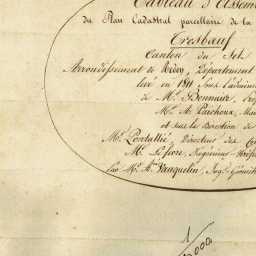 Tableau d'Assem
du Plan Cadastral parcellaire de la
Tresbœuf
Canton du Sel
Arrondissement de Redon, Département
levé en 1811 sous l'admini
de Mr. Bonnaire, Préf
Mr. A. Parchoux, Mai
et sous la direction de
Mr. Portallié, Directeur des Co
Mr. Lefèvre, Ingénieur-Vérif
Par Mr. Vauquelin, Ing. Géomèt
1